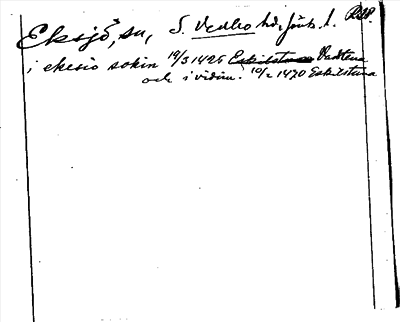 Eksjö, sn, S. Vedbo hd, Jönk. l. RAP.
i ekesio sokin 19/3 1425 Eskilstuna Vadstena
och i vidim. 10/2 1470 Eskilstuna